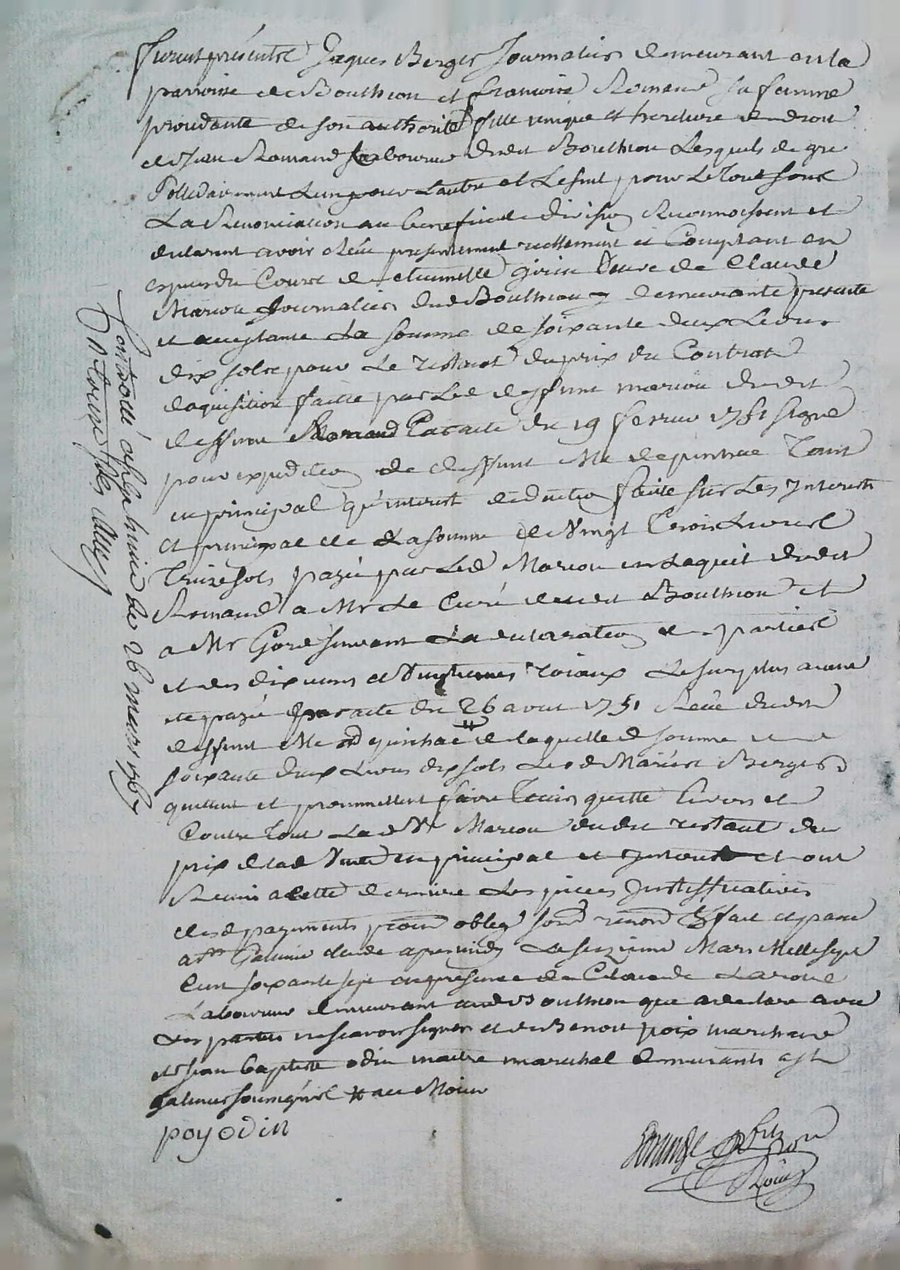 furent présents Jacques Berger Journalier demeurant en la
parroisse de Bouthion et françoise Romand sa femme
procedante de son authorité fille unique et heritiere de droit
de Jean Romand laboureur dudit Bouthion Lesquels de gré
sollidairement L'un pour L'autre et Le seul pour Le Tout sous
La Renonciation au benefice de division Reconnoissent et
declarent avoir Reçu presentement reellement et Comptant en
especes du Cours de veuve de Claude
Mariou Journalier dud Bouthion y demeurante presente
et acceptante La somme de soixante deux Livres
dix sols pour Le restant du prix du Contrat
daquisition faitte par Led deffunt mariou dudit
deffunt Romand Par acte du 19 fevrier 1751 signé
pour expedition de deffunt Me Tant
en principal qu'interest deduction faite sur Les Interests
et principal de La somme de Vingt Trois Livres
Treize sols payée par Led Mariou en Lacquit dudit
Romand a Mr Le Curé dudit Bouthion et
a Mr suivant La declaration et
et des dixiemes et Vingtiemes roiaux Le surplus avoir
eté payé Par acte du 26 aout 1751 Reçu dudit
deffunt Me de laquelle de somme de
soixante deux Livres dix sols Les d Mariés Berger
quittent et promettent faire Tenir quitte Envers et
Contre Tout La d Ve Mariou dudit restant du
prix de lad Vente en principal et Interest et ont
Remis a cette derniere Les pieces Justifficatives
desd payements fait et passé
a St Galmier etude apres midy Le seizieme Mars Mille sept
Cent soixante sept en presence de Claude Laroue
Laboureur demeurant aud Bouthion que a declaré avec
Les parties ne scavoir signer et de Benoit poix marchand
et Jean baptiste odin maitre marechal demeurants a St
Galmier soussignés
poy odin
Controllé a St Galmier Le 26 mars 1767